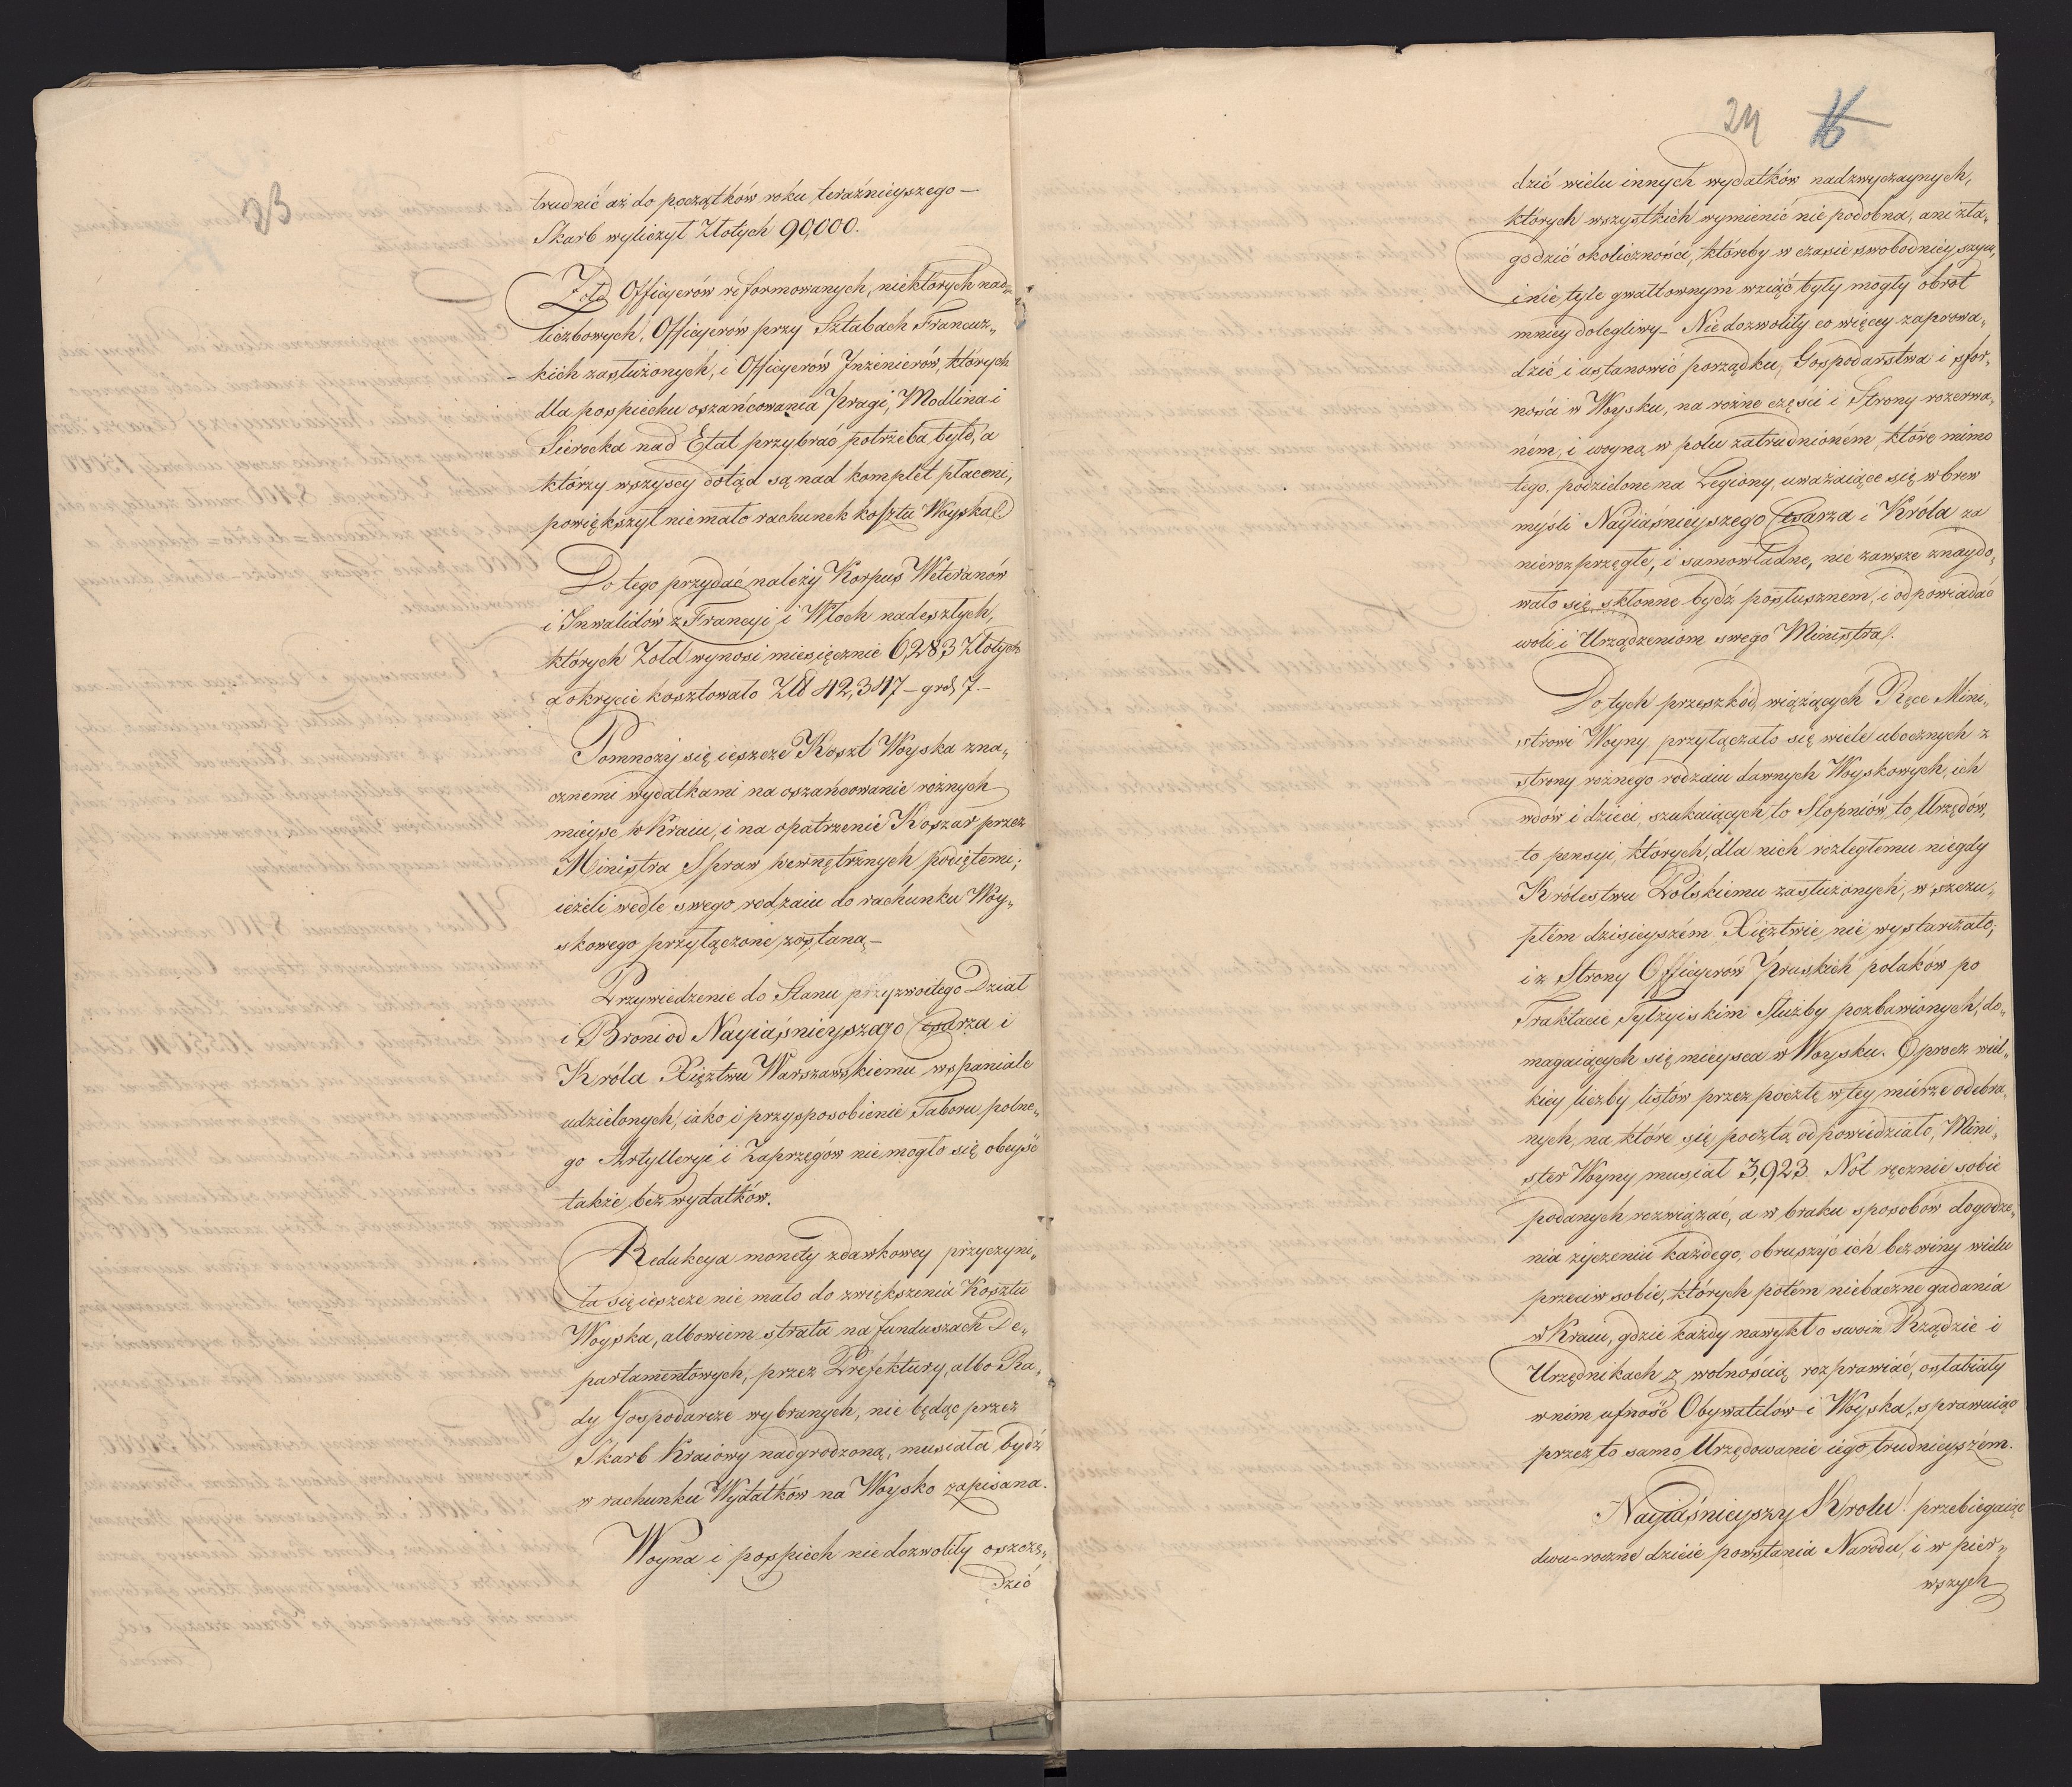 23
trudnić aż do początków roku teraźnieyszego —
Skarb wyliczył Złotych 90,000.
Żołd Officyerów reformowanych, niektórych nad„
liczbowych, Officyerów przy Sztabach Francuz„
kich zasłużonych, i Officyerów Inzenierów, których
dla pospiechu oszańcowania Pragi, Modlina i
Sierocka nad Etat przybrać potrzeba było, a
którzy wszyscy dotąd są nad komplet płaceni,
powiększył niemało rachunek kosztu Woyska.
Do tego przydać należy Korpus Weteranów
i Inwalidów z Francyi i Włoch nadeszłych,
których Żołd wynosi miesięcznie 6,283 Złotych
a okrycie kosztowało Zł 42,347 — gr. 7. —
Pomnoży się ieszcze Koszt Woyska zna„
cznemi wydatkami na oszańcowanie rożnych
mieysc w Kraiu, i na opatrzenie Koszar przez
Ministra Spraw wewnętrznych podiętemi;
ieżeli wedle swego rodzaiu do rachunku Woy„
skowego przyłączone zostaną —
Przywiedzenie do Stanu przyzwoitego Dział
i Broni od Nayiaśnieyszago Cesarza i
Króla Xięztwu Warszawskiemu wspaniale
udzielonych, iako i przysposobienie Taboru polne„
go Artylleryi i Zaprzęgów nie mogło się obeyść
także bez wydatków.
Redukcya monety zdawkowey przyczyni„
ła się ieszcze nie mało do zwiększenia Kosztu
Woyska, albowiem strata na funduszach De„
partamentowych, przez Prefektury, albo Ra„
dy Gospodarcze wybranych, nie będąc przez
Skarb Kraiowy nadgrodzoną, musiała bydź
w rachunku Wydatków na Woysko zapisana.
Woyna i pospiech nie dozwoliły oszczę„
dzić
24 16
dzić wielu innych wydatków nadzwyczaynych,
których wszystkich wymienić nie podobna, ani zła„
godzić okoliczności, któreby w czasie swobodnieyszym,
i nie tyle gwałtownym wziąć były mogły obrot
mniey dolegliwy — Nie dozwoliły co więcey zaprowa„
dzić i ustanowić porządku, Gospodarstwa i sfor„
ności w Woysku, na rożne części i Strony rozerwa„
ném, i woyną w polu zatrudnioném, które mimo
tego, podzielone na Legiony, uważaiące się wbrew
myśli Nayiaśnieyszego Cesarza i Króla za
nierozprzęgłe, i samowładne, nie zawsze znaydo„
wało się skłonne bydź posłusznem, i odpowiadać
woli i Urządzeniom swego Ministra.
Do tych przeszkód, wiążących Ręce Mini„
strowi Woyny, przyłączało się wiele ubocznych z
strony rożnego rodzaiu dawnych Woyskowych, ich
wdów i dzieci, szukaiących to Stopniów, to Urzędów,
to pensyi, których, dla nich rozległemu niegdy
Królestwu Polskiemu zasłużonych, w szczu„
płem dzisieyszém Xięztwie nie wystarczało;
i z Strony Officyerów Pruskich polaków po
Traktacie Tylżyiskim Służby pozbawionych, do„
magaiących się mieysca w Woysku. Oprocz wiel„
kiey liczby listów przez pocztę w tey mierze odebra„
nych, na które się pocztą odpowiedziało, Mini„
ster Woyny musiał 3,923. Not ręcznie sobie
podanych rozwiązać, a w braku sposobów dogodze„
nia życzeniu każdego, obruszyć ich bez winy wielu
przeciw sobie, których potém niebaczne gadania
w Kraiu, gdzie każdy nawykł o swoim Rządzie i
Urzędnikach z wolnością rozprawiać, osłabiały
w nim ufność Obywatelów i Woyska, sprawuiąc
przez to samo Urzędowanie iego trudnieyszém.
Nayiaśnieyszy Krolu! przebiegaiąc
dwu-roczne dzieie powstania Narodu, i w pier„
wszych